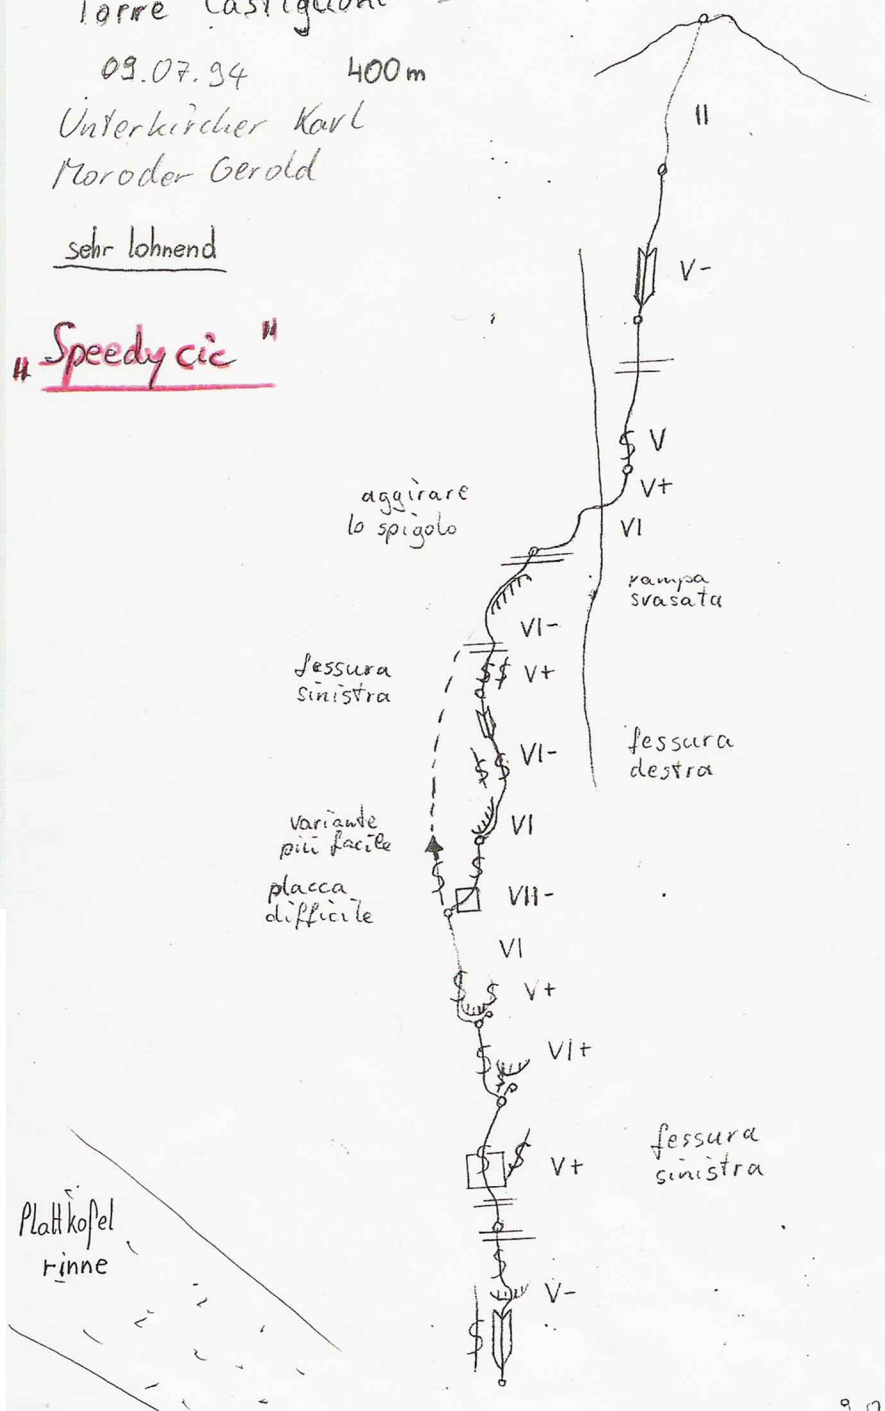 Torre Castiglioni
09.07.94 400m
Unterkircher Karl
Moroder Gerold
sehr lohnend
„Speedy cic"
II
V-
V
V+
aggirare
lo spigolo
VI
rampa
svasata
VI-
fessura
sinistra
V+
fessura
destra
VI-
VI
variante
più facile
placca
difficile
VII-
VI
V+
VI+
fessura
sinistra
V+
Plattkofel
rinne
V-